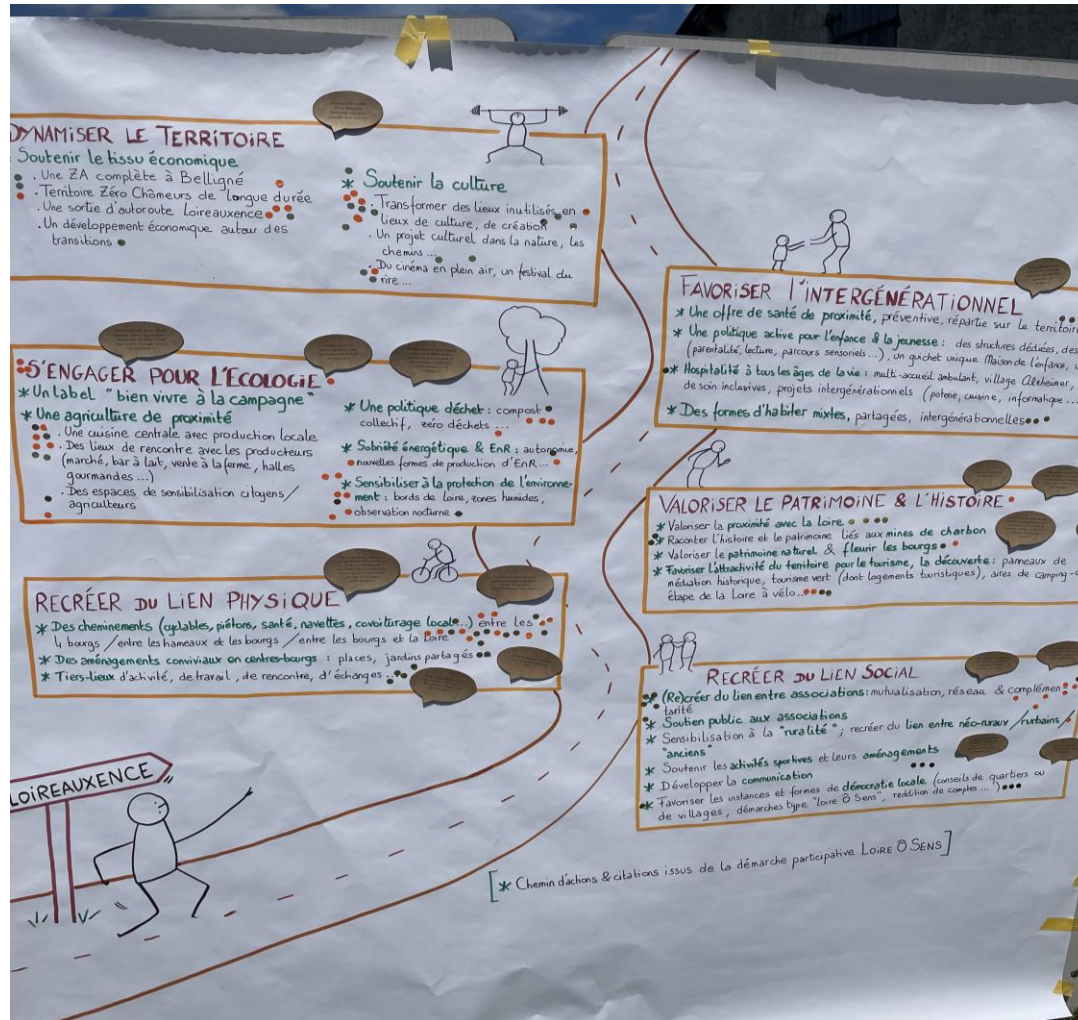 DYNAMISER LE TERRITOIRE
Soutenir le tissu économique
. Une ZA complète à Belligné
. Territoire Zéro Chômeurs de longue durée
. Une sortie d'autoroute Loireauxence
. Un développement économique autour des
transitions
* Soutenir la culture
. Transformer des lieux inutilisés en
lieux de culture, de création
. Un projet culturel dans la nature, les
chemins ...
. Du cinéma en plein air, un festival du
rire ...
S'ENGAGER POUR L'ÉCOLOGIE
* Un label "bien vivre à la campagne"
* Une agriculture de proximité
. Une cuisine centrale avec production locale
. Des lieux de rencontre avec les producteurs
(marché, bar à lait, vente à la ferme, halles
gourmandes ...)
. Des espaces de sensibilisation citoyens/
agriculteurs
* Une politique déchet : compost
collectif, zéro déchets ...
* Sobriété énergétique & EnR : autonomie,
nouvelles formes de production d'EnR...
* Sensibiliser à la protection de l'environne-
ment : bords de Loire, zones humides,
observation nocturne
RECRÉER DU LIEN PHYSIQUE
* Des cheminements (cyclables, piétons, santé, navettes, covoiturage local...) entre les
4 bourgs / entre les hameaux et les bourgs / entre les bourgs et la Loire
* Des aménagements conviviaux en centres-bourgs : places, jardins partagés
* Tiers-lieux d'activité, de travail, de rencontre, d'échanges ...
LOIREAUXENCE
FAVORISER l'INTERGÉNÉRATIONNEL
* Une offre de santé de proximité, préventive, répartie sur le territoire
* Une politique active pour l'enfance & la jeunesse : des structures dédiées, des
(parentalité, lecture, parcours sensoriels ...), un guichet unique Maison de l'enfance,
* Hospitalité à tous les âges de la vie : multi-accueil ambulant, village Alzheimer,
de soin inclusives, projets intergénérationnels (poterie, cuisine, informatique ...
* Des formes d'habiter mixtes, partagées, intergénérationnelles
VALORISER LE PATRIMOINE & L'HISTOIRE
* Valoriser la proximité avec la Loire
* Raconter l'histoire et le patrimoine liés aux mines de charbon
* Valoriser le patrimoine naturel & fleurir les bourgs
* Favoriser l'attractivité du territoire pour le tourisme, la découverte : panneaux de
médiation historique, tourisme vert (dont logements touristiques), aires de camping-
étape de la Loire à vélo ...
RECRÉER DU LIEN SOCIAL
* (Re)créer du lien entre associations : mutualisation, réseau & complémen
tarité
* Soutien public aux associations
* Sensibilisation à la "ruralité" ; recréer du lien entre néo-ruraux / rurbains /
"anciens"
* Soutenir les activités sportives et leurs aménagements
* Développer la communication
* Favoriser les instances et formes de démocratie locale (conseils de quartiers ou
de villages, démarches type "Loire Ô Sens", reddition de comptes ...)
[* Chemin d'actions & citations issus de la démarche participative LOIRE Ô SENS]